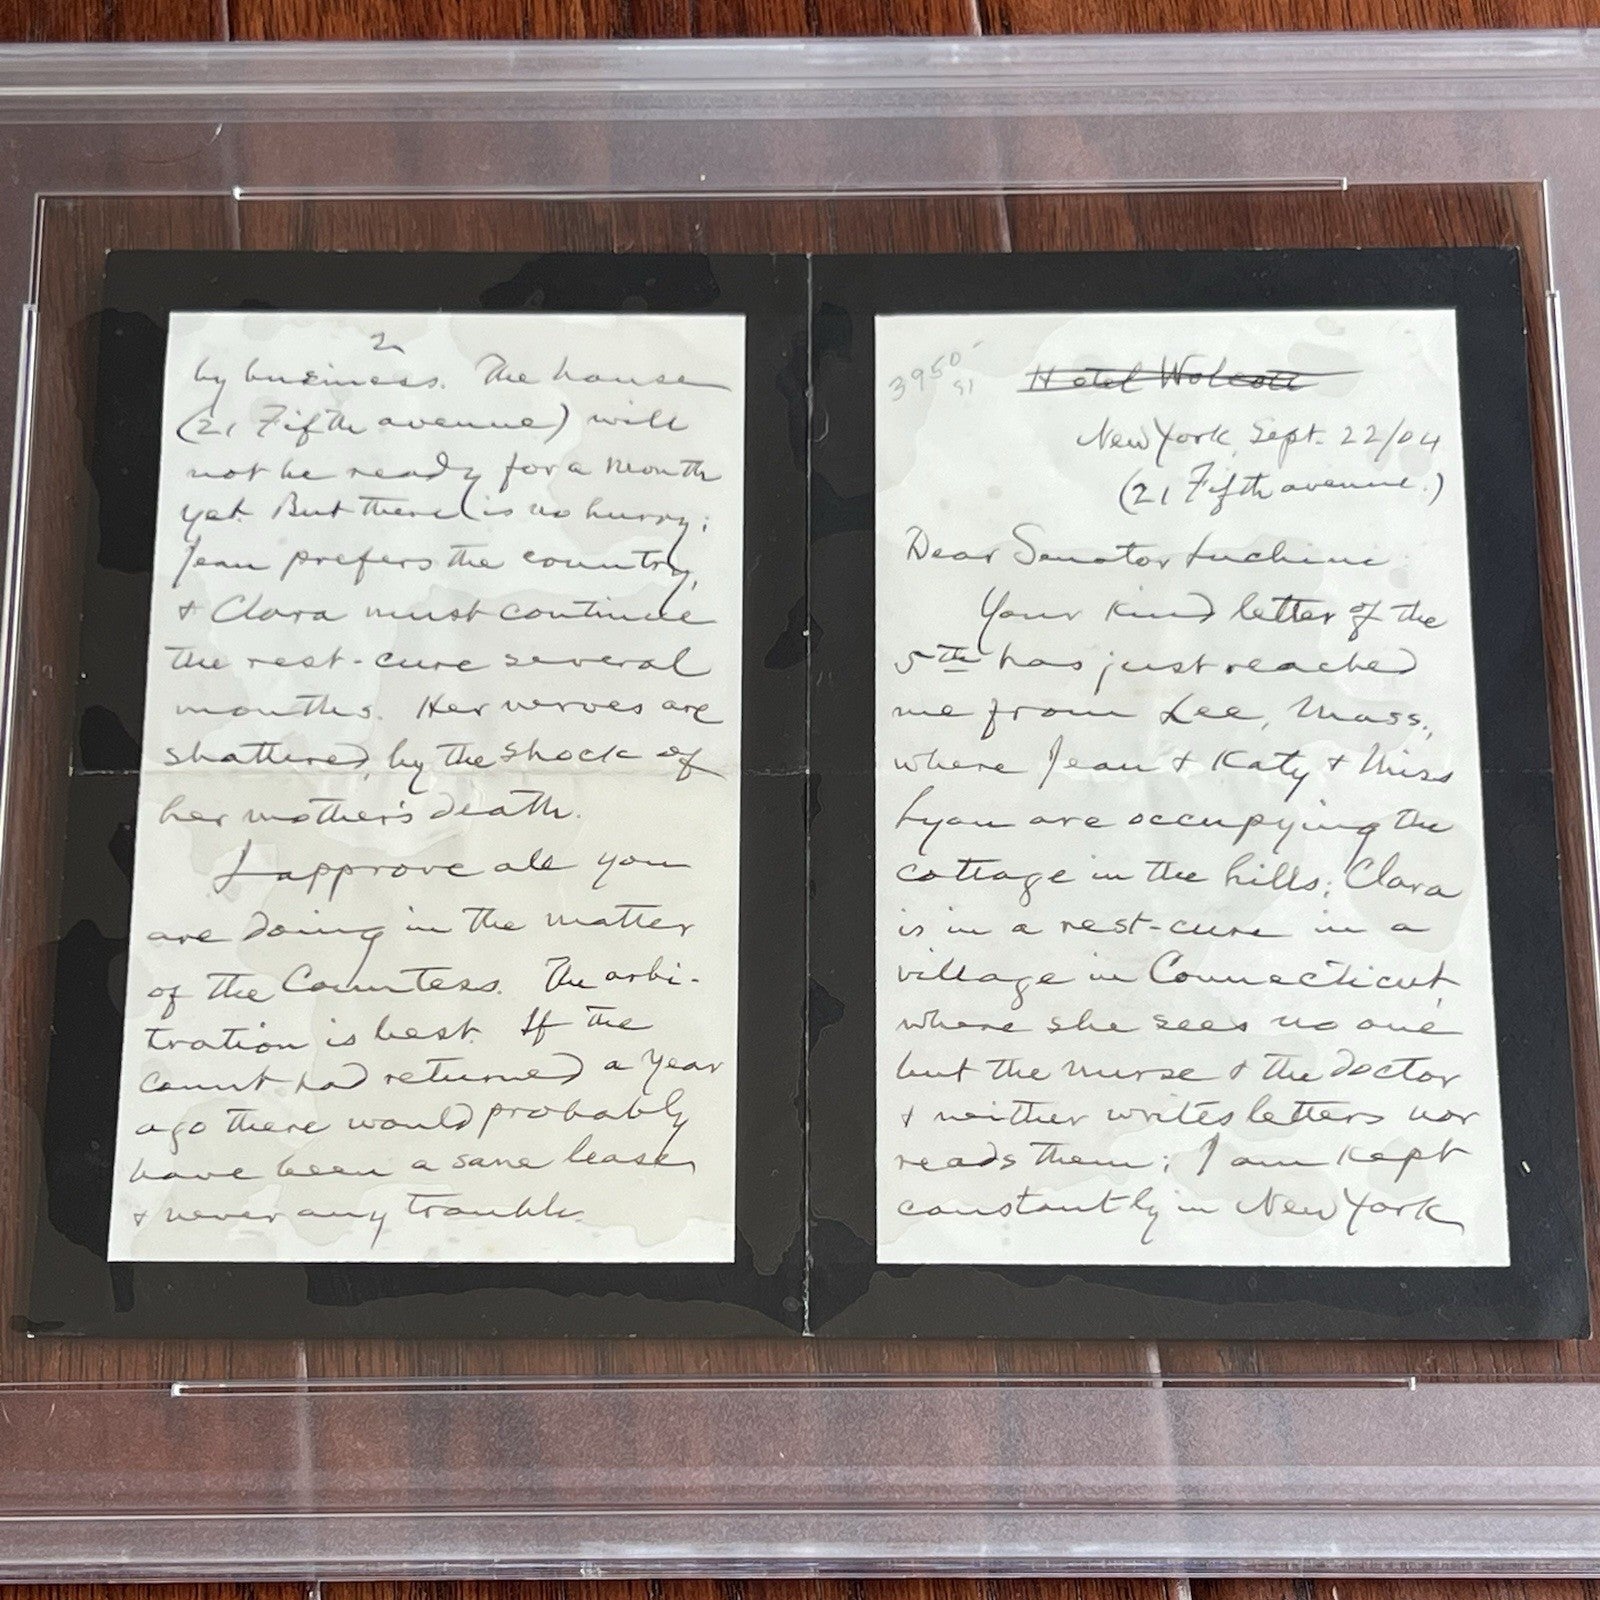 3950-
91
Hotel Wolcott
New York, Sept. 22/04
(21 Fifth avenue.)
Dear Senator Luchini:
Your kind letter of the
5th has just reached
me from Lee, Mass.,
where Jean & Katy & Miss
Lyon are occupying the
cottage in the hills; Clara
is in a rest-cure in a
village in Connecticut,
where she sees no one
but the nurse & the doctor
& neither writes letters nor
reads them; I am kept
constantly in New York
2
by business. The house
(21 Fifth avenue) will
not be ready for a month
yet. But there is no hurry;
Jean prefers the country,
& Clara must continue
the rest-cure several
months. Her nerves are
shattered, by the shock of
her mother's death.
I approve all you
are doing in the matter
of the Countess. The arbi-
tration is best. If the
Count had returned a year
ago there would probably
have been a sane lease,
& never any trouble.